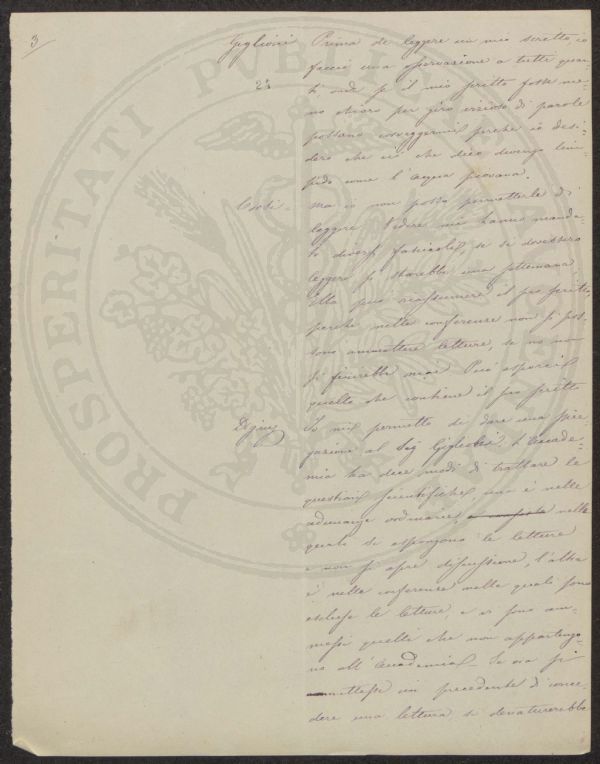 3
Giglioni Prima di leggere un mio scritto, io
faccio una osservazione a tutti quan-
ti onde se il mio scritto fosse me-
no chiaro per giro vizioso di parole
possano correggermi perchè io desi-
dero che ciò che dico divenga lim-
pido come l'acqua piovana.
Ma io non posso permetterle di
leggere. Vedere mi hanno manda-
to diversi fascicoli, se si dovessero
leggere si starebbe una settimana.
Ella può riassumere il suo scritto,
perchè nelle conferenze non si pos-
sono ammettere letture, se no non
si finirebbe mai. Può esporci
quello che contiene il suo scritto
Io mi permetto di dare una spie-
gazione al Sig Giglioli. L'Accade-
mia ha dece modi di trattare le
questioni scientifiche, uno è nelle
adunanze ordinarie, nelle
quali si espongono le letture
e non si apre discussione, l'altra
è nelle conferenze nelle quali sono
escluse le letture, e vi sono am-
messi quelli che non appartengo-
no all'Accademia. Se ora si
ammettesse un precedente di conce-
dere una lettura, si denaturerebbe
PROSPERITATI PUBLICAE